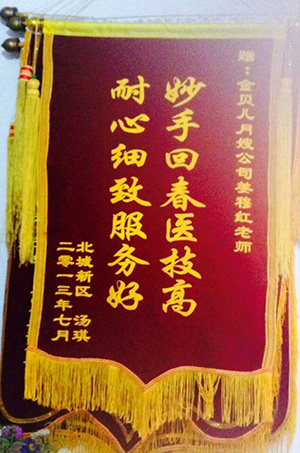 赠：金贝儿月嫂公司姜穆红老师
妙手回春医技高
耐心细致服务好
北城新区 汤琪
二零一三年七月